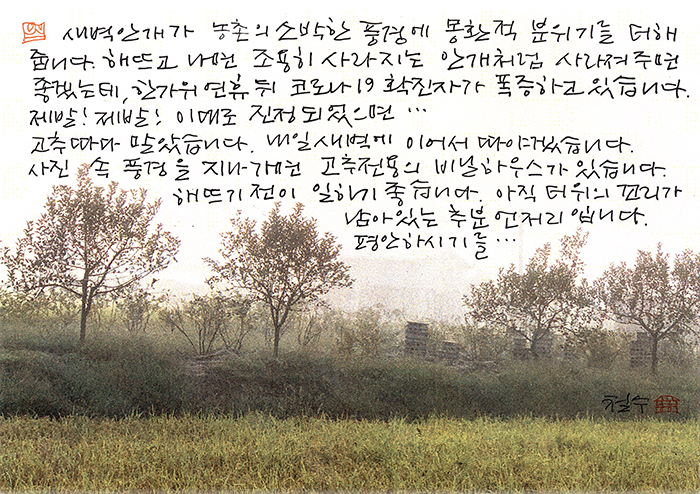 새벽안개가 농촌의 소박한 풍경에 몽환적 분위기를 더해
줍니다. 해뜨고 나면 조용히 사라지는 안개처럼 사라져주면
좋겠는데, 한가위 연휴 뒤 코로나19 확진자가 폭증하고 있습니다.
제발! 제발! 이대로 진정되었으면…
고추따다 말았습니다. 내일 새벽에 이어서 따야겠습니다.
사진 속 풍경을 지나가면 고추전용의 비닐하우스가 있습니다.
해뜨기 전이 일하기 좋습니다. 아직 더위의 꼬리가
남아있는 추분 언저리입니다.
평안하시기를…
철수